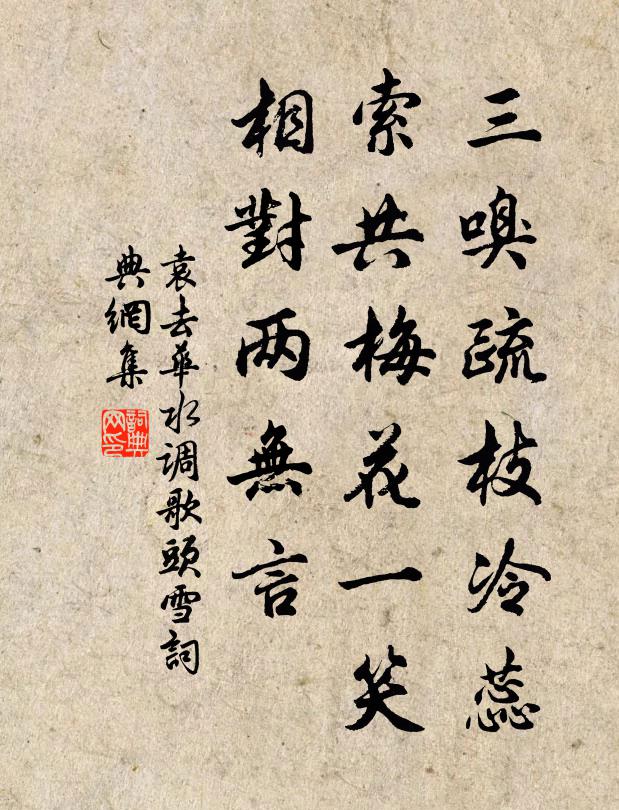 三嗅疏枝冷蕊
索共梅花一笑
相對两無言
袁去華水调歌頭雪詞
典網集
詞典网印